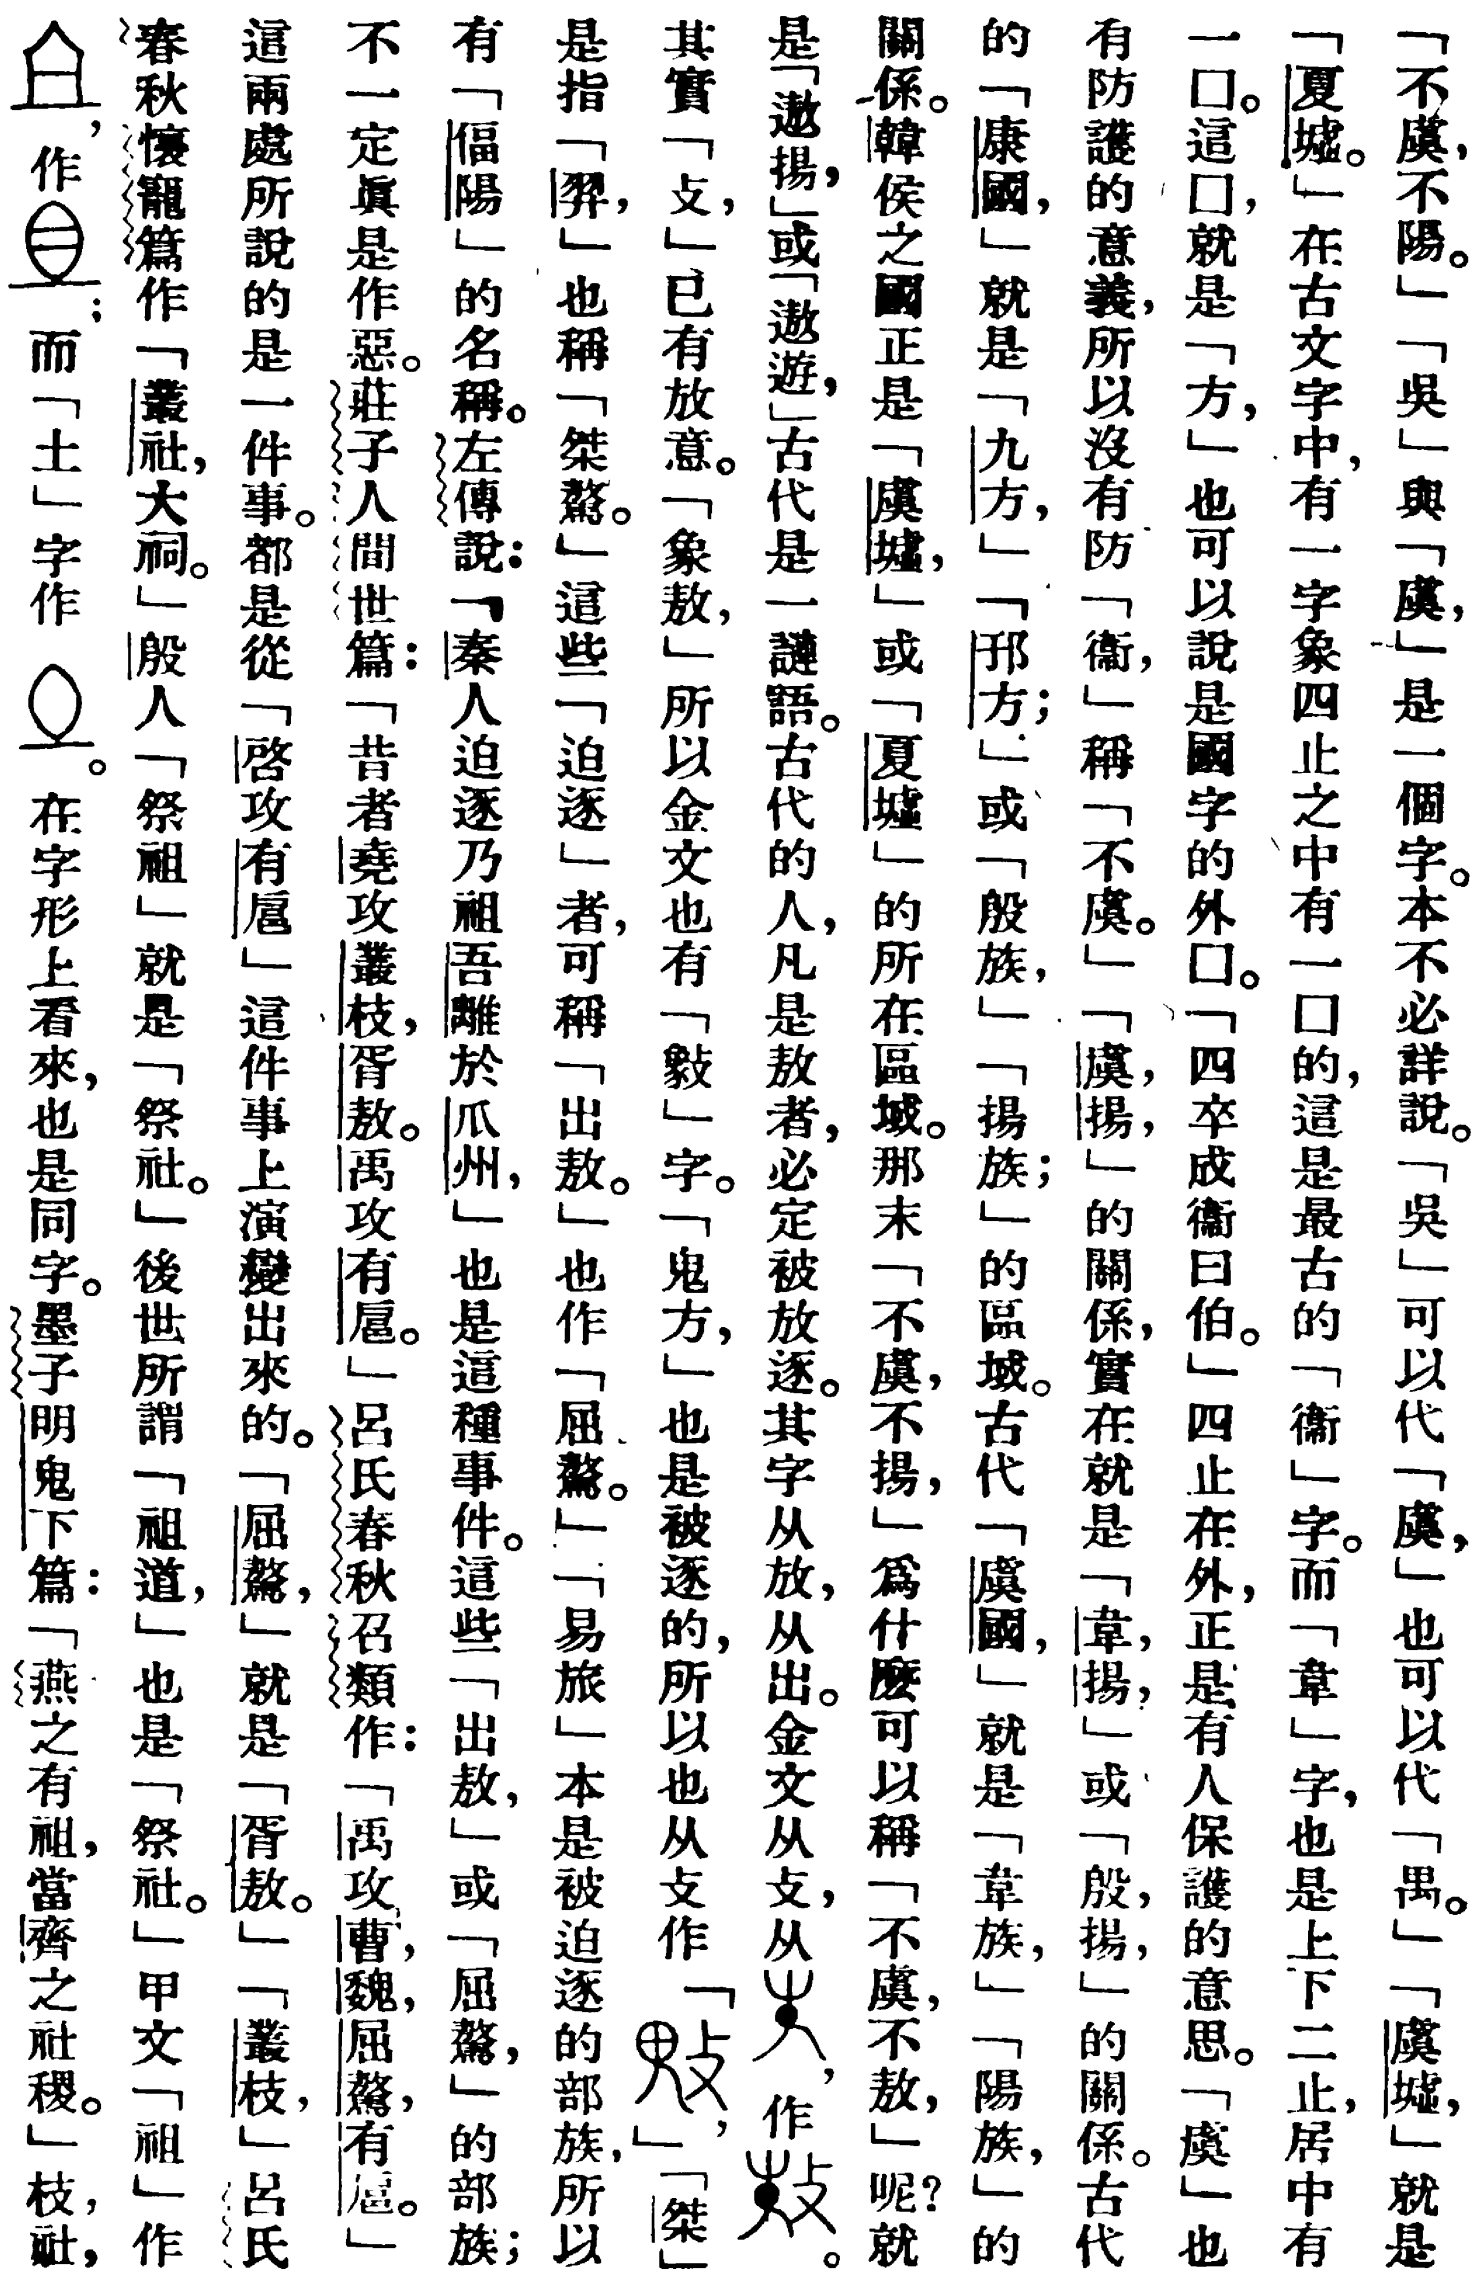 「不虞,不陽。」「吳」與「虞,」是一個字。本不必詳說。「吳」可以代「虞,」也可以代「禺。」「虞墟,」就是
「夏墟。」在古文字中,有一字象四止之中有一囗的,這是最古的「衞」字。而「韋」字,也是上下二止,居中有
一囗。這囗,就是「方,」也可以說是國字的外囗。「四卒成衞曰伯。」四止在外,正是有人保護的意思。「虞」也
有防護的意義,所以沒有防「衞,」稱「不虞。」「虞,揚,」的關係,實在就是「韋,揚,」或「殷,揚,」的關係。古代
的「康國,」就是「九方,」「邘方;」或「殷族,」「揚族;」的區域。古代「虞國,」就是「韋族,」「陽族,」的
關係。韓侯之國正是「虞墟,」或「夏墟」的所在區域。那末「不虞,不揚,」爲什麽可以稱「不虞,不敖,」呢?就
是「遨揚,」或「遨遊,」古代是一謰語。古代的人,凡是敖者,必定被放逐。其字从放,从出。金文从攴,从,作。
其實「攴,」已有放意。「象敖,」所以金文也有「㪣」字。「鬼方,」也是被逐的,所以也从攴作「,」「桀」
是指「羿,」也稱「桀驁。」這些「迫逐」者,可稱「出敖。」也作「屈驁。」「易旅」本是被迫逐的部族,所以
有「偪陽」的名稱。左傳說:「秦人迫逐乃祖吾離於瓜州,」也是這種事件。這些「出敖,」或「屈驁,」的部族;
不一定眞是作惡。莊子人間世篇:「昔者堯攻叢枝,胥敖。禹攻有扈。」呂氏春秋召類作:「禹攻曹,魏,屈驁,有扈。」
這兩處所說的是一件事。都是從「啓攻有扈」這件事上演變出來的。「屈驁,」就是「胥敖。」「叢枝,」呂氏
春秋懷寵篇作「叢社,大祠。」殷人「祭祖」就是「祭社。」後世所謂「祖道,」也是「祭社。」甲文「祖」作
,作;而「土」字作。在字形上看來,也是同字。墨子明鬼下篇:「燕之有祖,當齊之社稷。」枝,社,